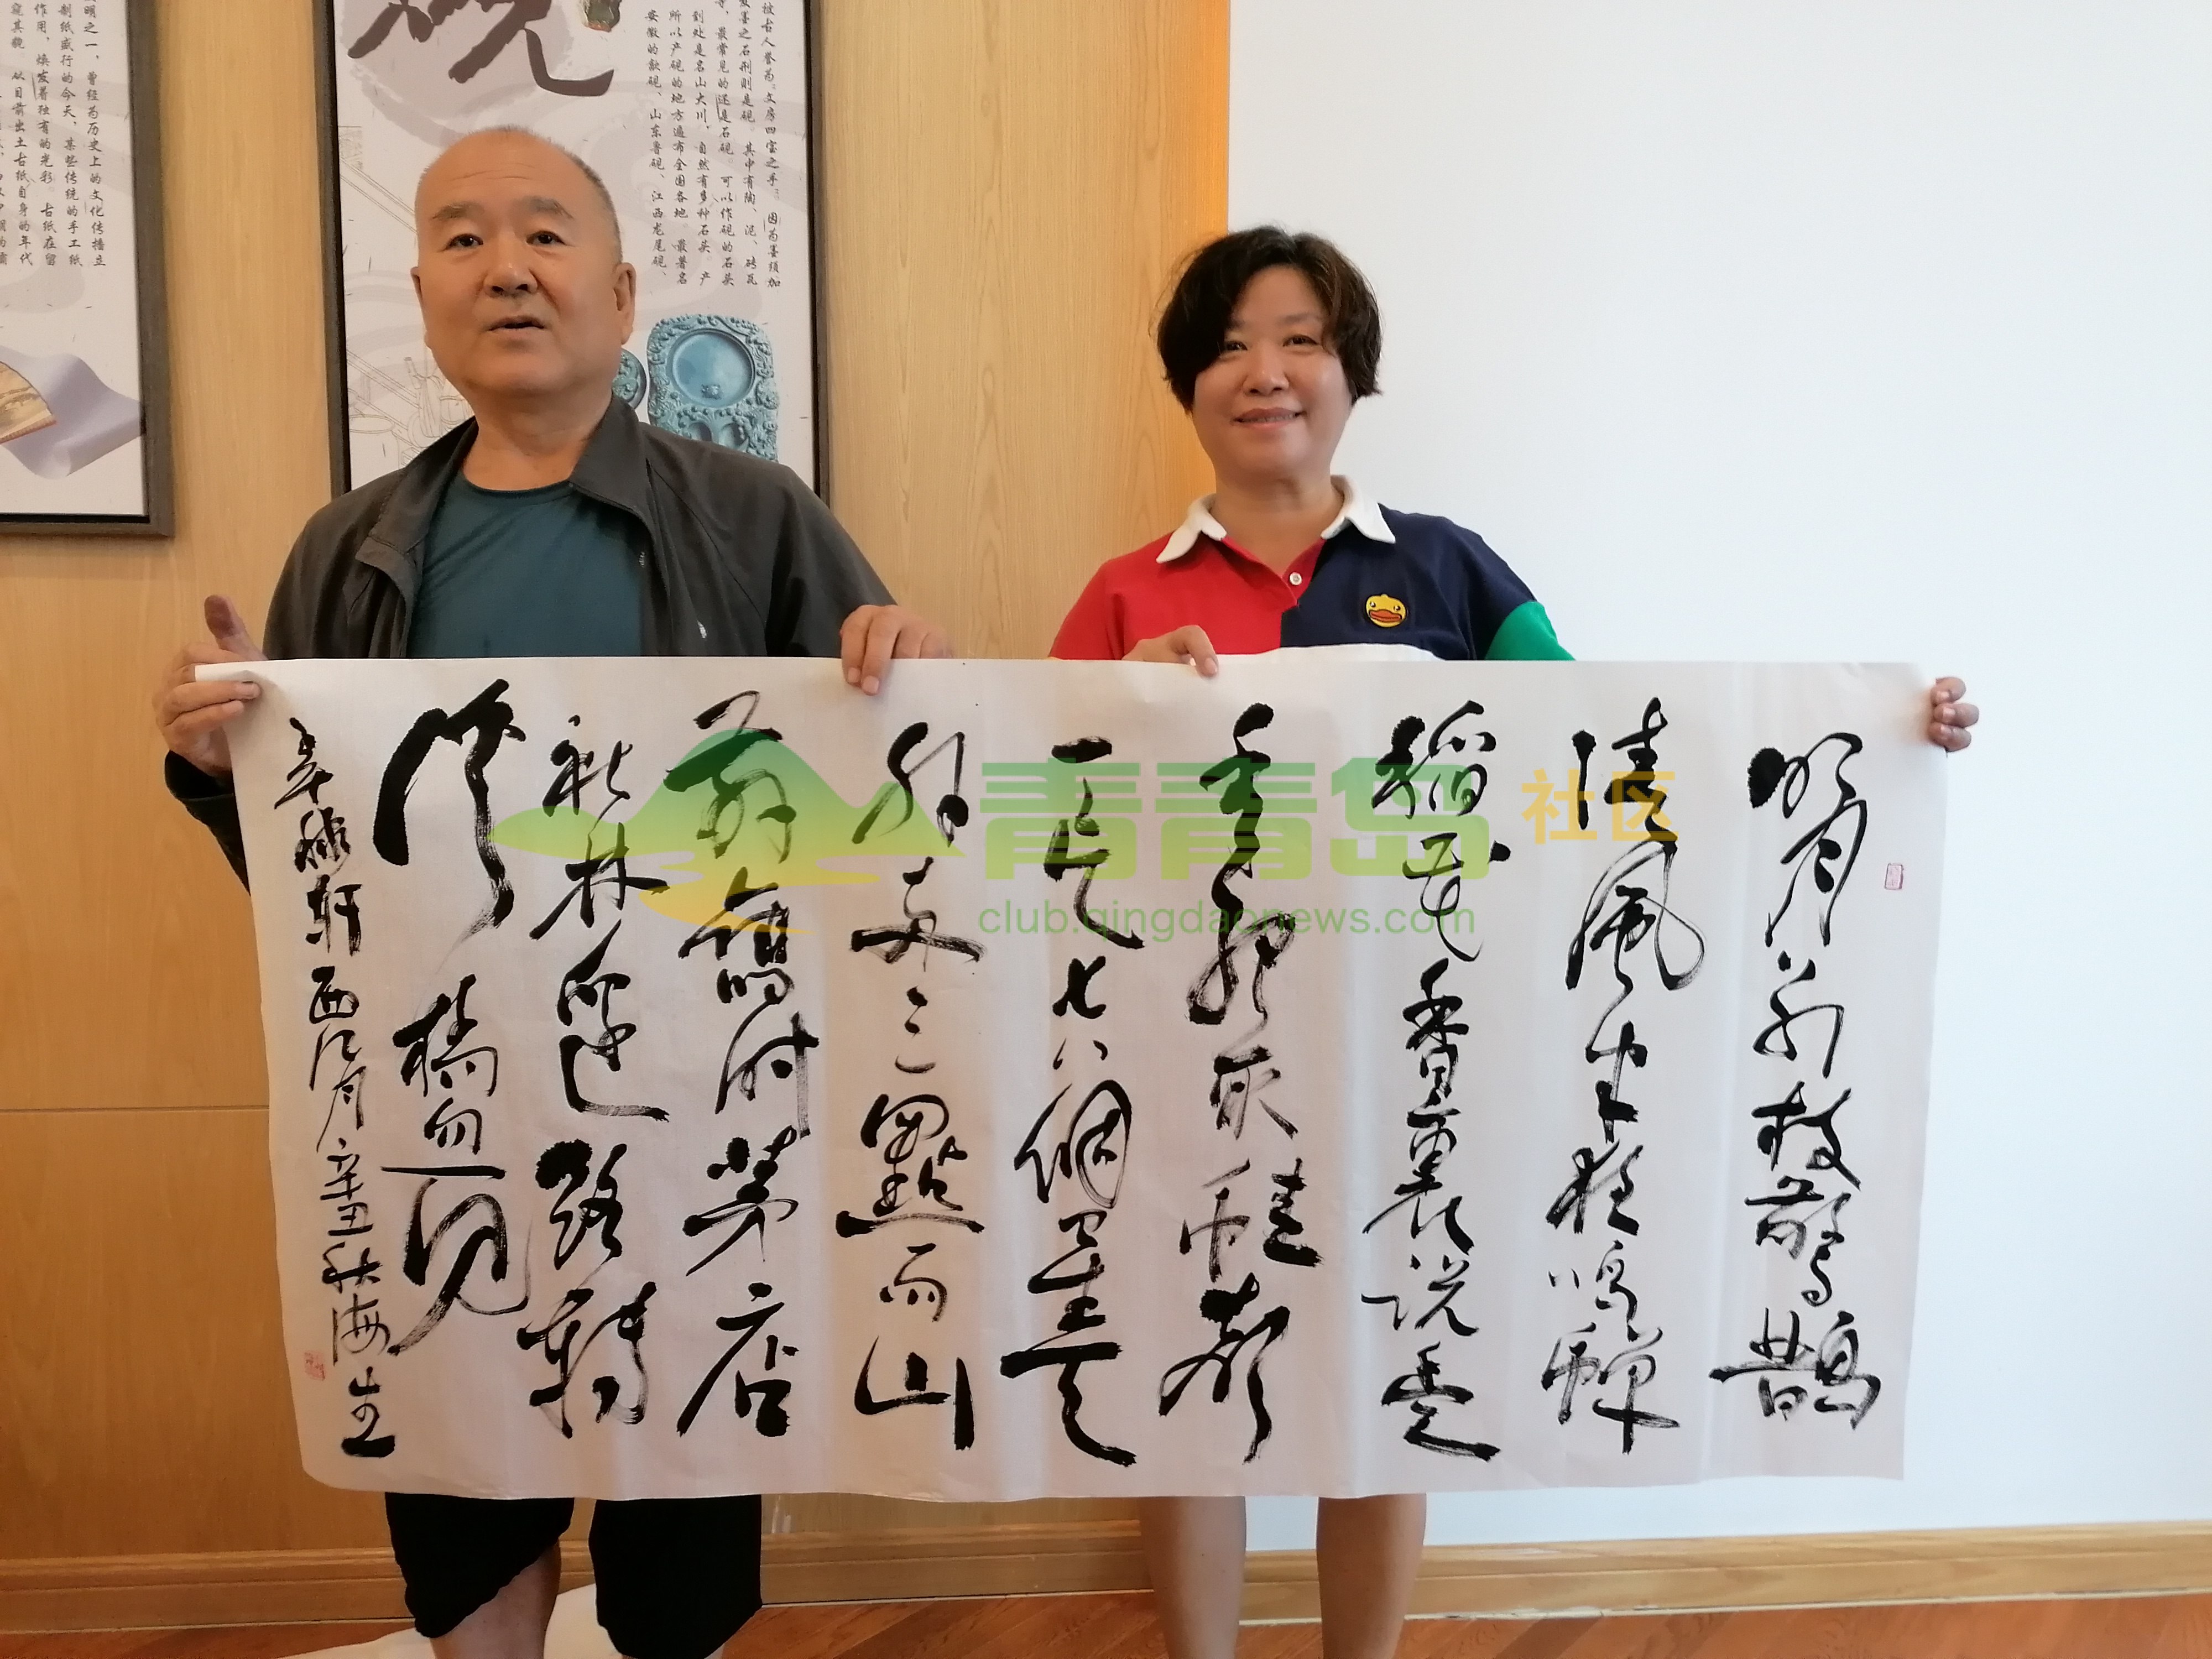 砚
被古人誉为“文房四宝之手”。因为墨须加
发墨之石刑则是砚。其中有陶、泥、砖瓦
最常见的还是石砚。可以作砚的石头
到处是名山大川，自然有多种石头。产
所以产砚的地方遍布全国各地。最著名
安徽的歙砚、山东鲁砚、江西龙尾砚、
明之一，曾经为历史上的文化传播立
制纸盛行的今天，某些传统的手工纸
作用，焕发着独有的光彩。古纸在留
窥其貌 从目前出土古纸自身的年代
明月别枝驚鵲
清風半夜鳴蟬
稻花香裏说豐
年聽取蛙聲
一片七八個星天
外兩三點雨山
前舊時茅店
社林邊路轉
溪橋忽見
辛稼軒西江月辛丑秋海生
青青岛社区
club.qingdaonews.com